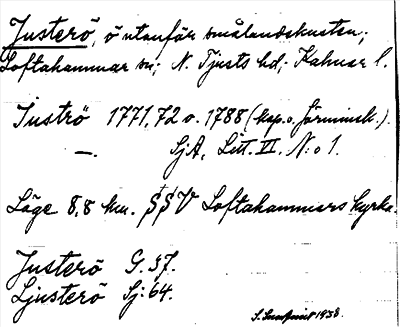 Justerö, ö utanför smålandskusten;
Loftahammar sn; N. Tjusts hd; Kalmar l.
Juströ 1771, 72 o. 1788 (kop. o. förminsk.).
—. SjA, Litt. VI. N:o 1.
Läge 8,8 km. SSV Loftahammars kyrka.
Justerö G. 37.
Ljusterö Sj: 64.
1938